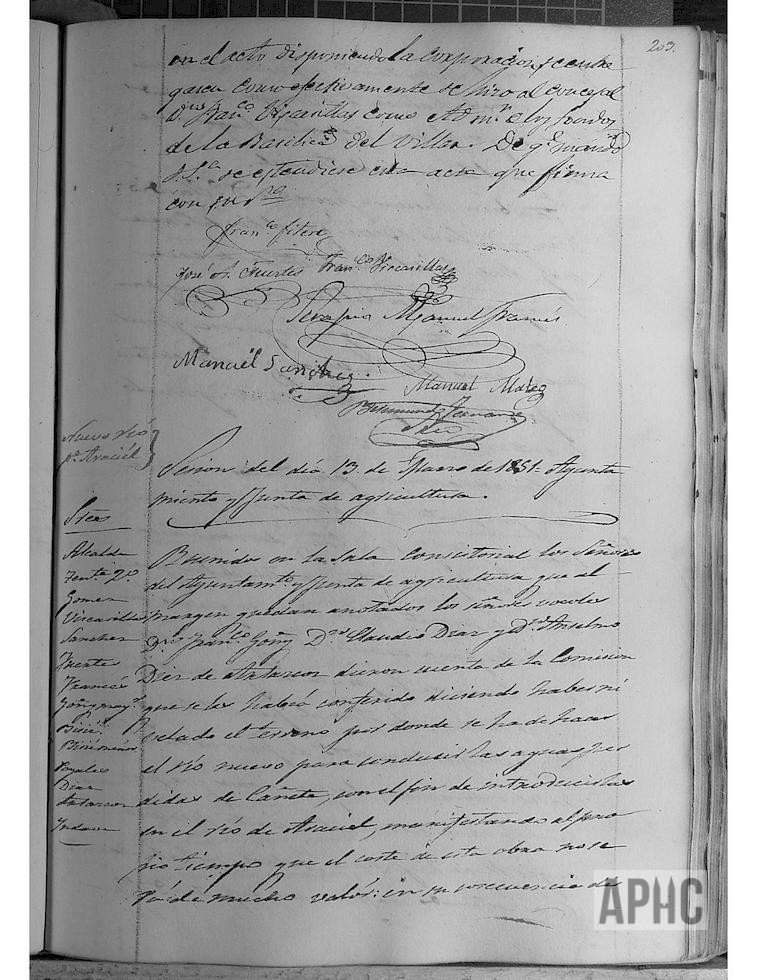 203.
en el acto disponiendo la corporacion, se entre
gasen como efectivamente se hizo al concejal
Dn. Franco. Vicarillas como Admr. de los fondos
de la Basilica del Villar. De qe. mando
S.Sa. se estendiese esta acta que firma
con
Franco. Fitero
José A. Fuertes Franco. Vicarillas
Serapio Manuel Francés
Manuel Sanchez.
Manuel Mateo
Srio
Nuevo rio
pa. Araciél
Sesion del dia 13 de Marzo de 1851. Ayunta
miento y Junta de agricultura.
Sres
Alcalde
Tente. 2o.
Gomez
Vicarillas
Sanchez
Fuertes
Francés
Goñy mayr.
Payales
Diaz
Antarcon
Reunidos en la Sala Consistorial los Señores
del Ayuntamto. y Junta de agricultura que al
margen quedan anotados los señores vocales
Dn. Franco. Goñy Dn. Claudio Diaz y Dn. Anselmo
Diez de Antarcon dieron cuenta de la Comision
que se les habia conferido diciendo haber ni
velado el terreno por donde se ha de hacer
el rio nuevo para conducir las aguas per
didas de Cañete, con el fin de introducirlas
en el rio de Araciel, manifestando al pro
pio tiempo que el coste de esta obra no se
rá de mucho valór: en su consecuencia de
APHC